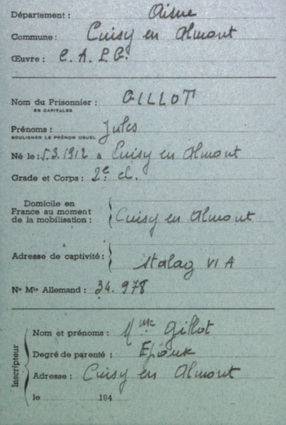 Département : Aisne
Commune : Cuisy en Almont
Œuvre : C. A. P. G.
Nom du Prisonnier : GILLOT
EN CAPITALES
Prénoms : Jules
SOULIGNER LE PRÉNOM USUEL
Né le : 5.3.1912 à Cuisy en Almont
Grade et Corps : 2e cl.
Domicile en
France au moment
de la mobilisation : Cuisy en Almont
Adresse de captivité : Stalag VI A
No Mle Allemand : 34.978
Inscripteur
Nom et prénoms : Mme Gillot
Degré de parenté : Epoux
Adresse : Cuisy en Almont
le 194